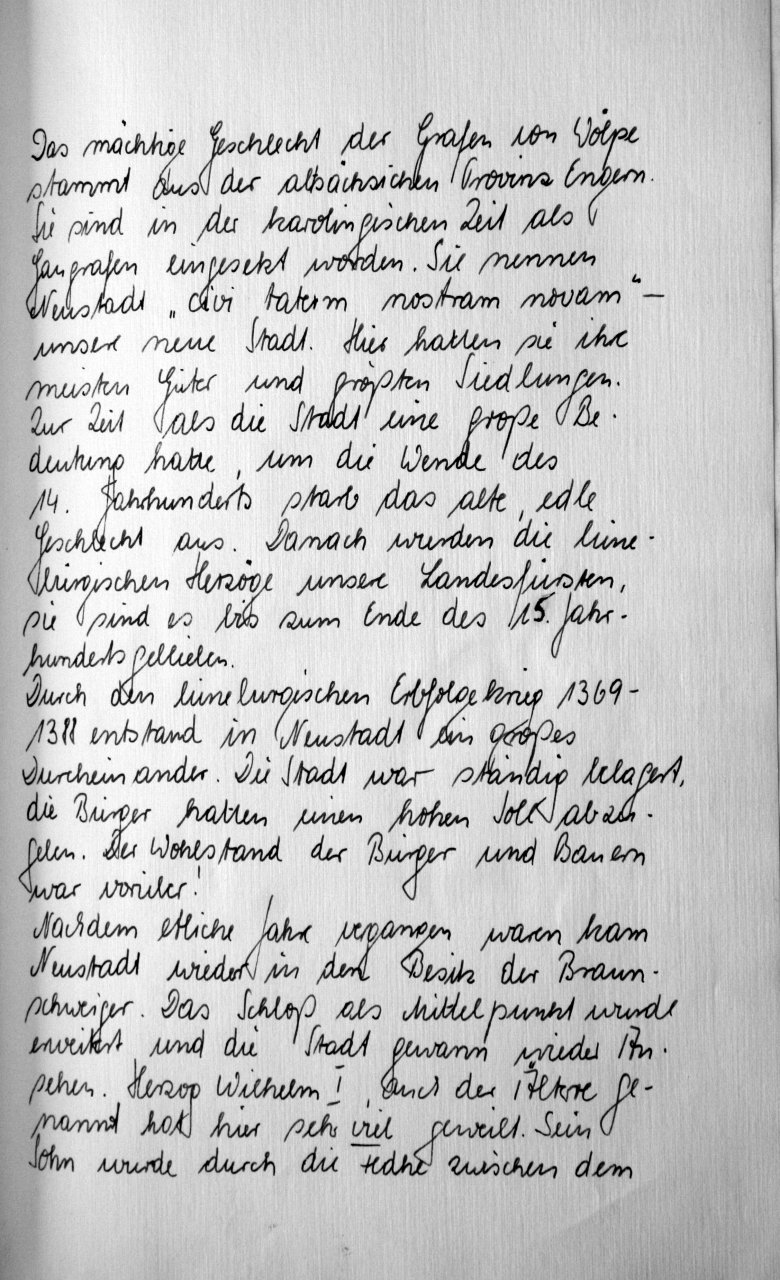 Das mächtige Geschlecht der Grafen von Wölpe
stammt aus der altsächsichen Provinz Engern.
Sie sind in der karolingischen Zeit als
Gaugrafen eingesetzt worden. Sie nennen
Neustadt „civi taterm nostram novam" –
unsere neue Stadt. Hier hatten sie ihre
meisten Güter und größten Siedlungen.
Zur Zeit als die Stadt eine große Be-
deutung hatte, um die Wende des
14. Jahrhunderts starb das alte, edle
Geschlecht aus. Danach wurden die lüne-
burgischen Herzöge unsere Landesfürsten,
sie sind es bis zum Ende des 15. Jahr-
hunderts geblieben.
Durch den lüneburgischen Erbfolgekrieg 1369-
1388 entstand in Neustadt ein großes
Durcheinander. Die Stadt war ständig belagert,
die Bürger hatten einen hohen Zoll abzu-
geben. Der Wohlstand der Bürger und Bauern
war vorüber!
Nachdem etliche Jahre vergangen waren kam
Neustadt wieder in den Besitz der Braun-
schweiger. Das Schloß als Mittelpunkt wurde
erweitert und die Stadt gewann wieder An-
sehen. Herzog Wilhelm I, auch der Ältere ge-
nannt hat hier sehr viel geweilt. Sein
Sohn wurde durch die zwischen dem